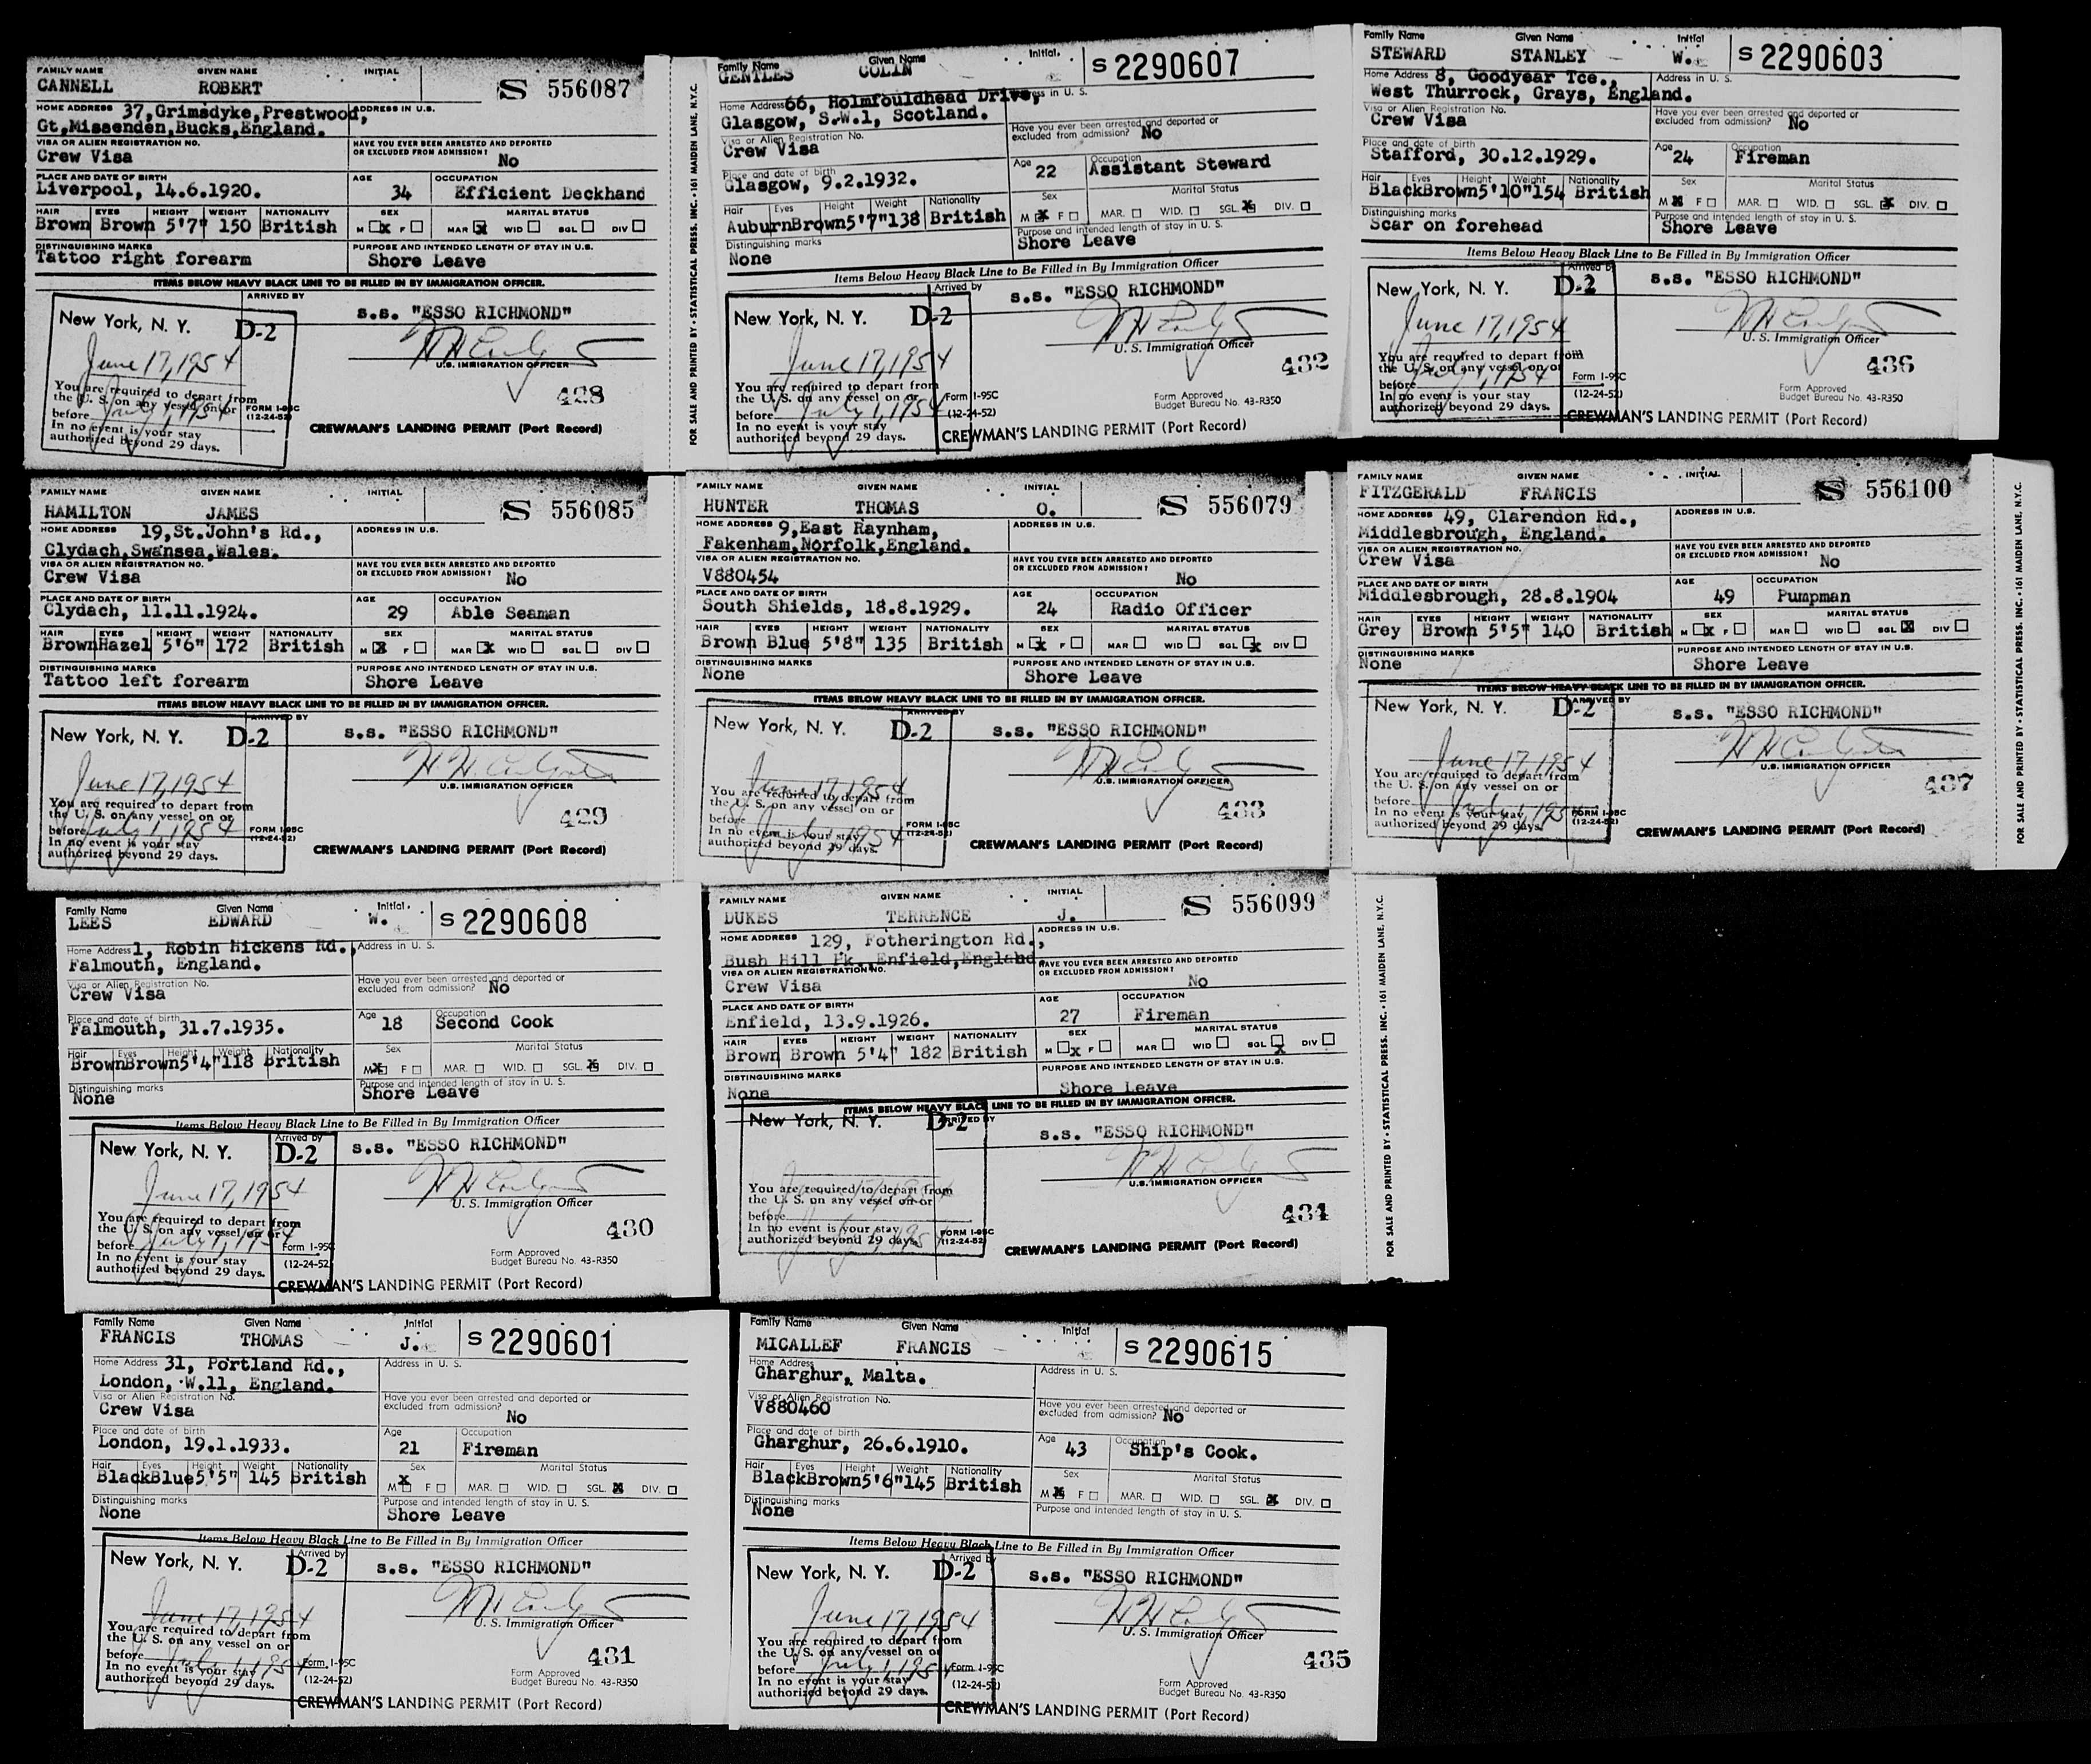 FAMILY NAME GIVEN NAME INITIAL
CANNELL ROBERT S 556087
HOME ADDRESS 37,Grimsdyke,Prestwood, ADDRESS IN U.S.
Gt,Missenden,Bucks,England.
VISA OR ALIEN REGISTRATION NO. HAVE YOU EVER BEEN ARRESTED AND DEPORTED
OR EXCLUDED FROM ADMISSION?
Crew Visa No
PLACE AND DATE OF BIRTH AGE OCCUPATION
Liverpool, 14.6.1920. 34 Efficient Deckhand
HAIR EYES HEIGHT WEIGHT NATIONALITY SEX MARITAL STATUS
Brown Brown 5'7" 150 British M X F MAR X WID SGL DIV
DISTINGUISHING MARKS PURPOSE AND INTENDED LENGTH OF STAY IN U.S.
Tattoo right forearm Shore Leave
ITEMS BELOW HEAVY BLACK LINE TO BE FILLED IN BY IMMIGRATION OFFICER.
ARRIVED BY
New York, N. Y. D-2 s.s. "ESSO RICHMOND"
June 17, 1954
U.S. IMMIGRATION OFFICER
You are required to depart from
the U. S. on any vessel on or
before July 1, 1954
In no event is your stay
authorized beyond 29 days.
FORM I-95C
(12-24-52)
428
CREWMAN'S LANDING PERMIT (Port Record)
FOR SALE AND PRINTED BY • STATISTICAL PRESS, INC. • 161 MAIDEN LANE, N.Y.C.
Family Name Given Name Initial.
GENTLES COLIN S 2290607
Home Address 66, Holmfouldhead Drive, Address in U. S.
Glasgow, S.W.1, Scotland.
Visa or Alien Registration No. Have you ever been arrested and deported or
excluded from admission? No
Crew Visa
Place and date of birth Age Occupation
Glasgow, 9.2.1932. 22 Assistant Steward
Hair Eyes Height Weight Nationality Sex Marital Status
Auburn Brown 5'7" 138 British M X F MAR. WID. SGL. X DIV.
Distinguishing marks Purpose and intended length of stay in U. S.
None Shore Leave
Items Below Heavy Black Line to Be Filled in By Immigration Officer
Arrived by
New York, N. Y. D-2 s.s. "ESSO RICHMOND"
June 17, 1954
U. S. Immigration Officer
You are required to depart from
the U. S. on any vessel on or
before July 1, 1954
In no event is your stay
authorized beyond 29 days.
Form I-95C
(12-24-52)
432
Form Approved
Budget Bureau No. 43-R350
CREWMAN'S LANDING PERMIT (Port Record)
Family Name Given Name Initial
STEWARD STANLEY W. S 2290603
Home Address 8, Goodyear Tce., Address in U. S.
West Thurrock, Grays, England.
Visa or Alien Registration No. Have you ever been arrested and deported or
excluded from admission? No
Crew Visa
Place and date of birth Age Occupation
Stafford, 30.12.1929. 24 Fireman
Hair Eyes Height Weight Nationality Sex Marital Status
Black Brown 5'10" 154 British M X F MAR. WID. SGL. X DIV.
Distinguishing marks Purpose and intended length of stay in U. S.
Scar on forehead Shore Leave
Items Below Heavy Black Line to Be Filled in By Immigration Officer
Arrived by
New York, N. Y. D-2 s.s. "ESSO RICHMOND"
June 17, 1954
U. S. Immigration Officer
You are required to depart from
the U. S. on any vessel on or
before July 1, 1954
In no event is your stay
authorized beyond 29 days.
Form I-95C
(12-24-52)
436
Form Approved
Budget Bureau No. 43-R350
CREWMAN'S LANDING PERMIT (Port Record)
FAMILY NAME GIVEN NAME INITIAL
HAMILTON JAMES S 556085
HOME ADDRESS 19,St.John's Rd., ADDRESS IN U.S.
Clydach,Swansea,Wales.
VISA OR ALIEN REGISTRATION NO. HAVE YOU EVER BEEN ARRESTED AND DEPORTED
OR EXCLUDED FROM ADMISSION?
Crew Visa No
PLACE AND DATE OF BIRTH AGE OCCUPATION
Clydach, 11.11.1924. 29 Able Seaman
HAIR EYES HEIGHT WEIGHT NATIONALITY SEX MARITAL STATUS
Brown Hazel 5'6" 172 British M X F MAR X WID SGL DIV
DISTINGUISHING MARKS PURPOSE AND INTENDED LENGTH OF STAY IN U.S.
Tattoo left forearm Shore Leave
ITEMS BELOW HEAVY BLACK LINE TO BE FILLED IN BY IMMIGRATION OFFICER.
ARRIVED BY
New York, N. Y. D-2 s.s. "ESSO RICHMOND"
June 17, 1954
U.S. IMMIGRATION OFFICER
You are required to depart from
the U. S. on any vessel on or
before July 1, 1954
In no event is your stay
authorized beyond 29 days.
FORM I-95C
(12-24-52)
429
CREWMAN'S LANDING PERMIT (Port Record)
FAMILY NAME GIVEN NAME INITIAL
HUNTER THOMAS O. S 556079
HOME ADDRESS 9,East Raynham, ADDRESS IN U.S.
Fakenham,Norfolk,England.
VISA OR ALIEN REGISTRATION NO. HAVE YOU EVER BEEN ARRESTED AND DEPORTED
OR EXCLUDED FROM ADMISSION?
V880454 No
PLACE AND DATE OF BIRTH AGE OCCUPATION
South Shields, 18.8.1929. 24 Radio Officer
HAIR EYES HEIGHT WEIGHT NATIONALITY SEX MARITAL STATUS
Brown Blue 5'8" 135 British M X F MAR WID SGL X DIV
DISTINGUISHING MARKS PURPOSE AND INTENDED LENGTH OF STAY IN U.S.
None Shore Leave
ITEMS BELOW HEAVY BLACK LINE TO BE FILLED IN BY IMMIGRATION OFFICER.
ARRIVED BY
New York, N. Y. D-2 s.s. "ESSO RICHMOND"
June 17, 1954
U.S. IMMIGRATION OFFICER
You are required to depart from
the U. S. on any vessel on or
before July 1, 1954
In no event is your stay
authorized beyond 29 days.
FORM I-95C
(12-24-52)
433
CREWMAN'S LANDING PERMIT (Port Record)
FAMILY NAME GIVEN NAME INITIAL
FITZGERALD FRANCIS S 556100
HOME ADDRESS 49, Clarendon Rd., ADDRESS IN U.S.
Middlesbrough, England.
VISA OR ALIEN REGISTRATION NO. HAVE YOU EVER BEEN ARRESTED AND DEPORTED
OR EXCLUDED FROM ADMISSION?
Crew Visa No
PLACE AND DATE OF BIRTH AGE OCCUPATION
Middlesbrough, 28.8.1904 49 Pumpman
HAIR EYES HEIGHT WEIGHT NATIONALITY SEX MARITAL STATUS
Grey Brown 5'5" 140 British M X F MAR WID SGL X DIV
DISTINGUISHING MARKS PURPOSE AND INTENDED LENGTH OF STAY IN U.S.
None Shore Leave
ITEMS BELOW HEAVY BLACK LINE TO BE FILLED IN BY IMMIGRATION OFFICER.
ARRIVED BY
New York, N. Y. D-2 s.s. "ESSO RICHMOND"
June 17, 1954
U.S. IMMIGRATION OFFICER
You are required to depart from
the U. S. on any vessel on or
before July 1, 1954
In no event is your stay
authorized beyond 29 days.
FORM I-95C
(12-24-52)
437
CREWMAN'S LANDING PERMIT (Port Record)
FOR SALE AND PRINTED BY • STATISTICAL PRESS, INC. • 161 MAIDEN LANE, N.Y.C.
Family Name Given Name Initial.
LEES EDWARD W. S 2290608
Home Address 1, Robin Hickens Rd., Address in U. S.
Falmouth, England.
Visa or Alien Registration No. Have you ever been arrested and deported or
excluded from admission? No
Crew Visa
Place and date of birth Age Occupation
Falmouth, 31.7.1935. 18 Second Cook
Hair Eyes Height Weight Nationality Sex Marital Status
Brown Brown 5'4" 118 British M X F MAR. WID. SGL. X DIV.
Distinguishing marks Purpose and intended length of stay in U. S.
None Shore Leave
Items Below Heavy Black Line to Be Filled in By Immigration Officer
Arrived by
New York, N. Y. D-2 s.s. "ESSO RICHMOND"
June 17, 1954
U. S. Immigration Officer
You are required to depart from
the U. S. on any vessel on or
before July 1, 1954
In no event is your stay
authorized beyond 29 days.
Form I-95C
(12-24-52)
430
Form Approved
Budget Bureau No. 43-R350
CREWMAN'S LANDING PERMIT (Port Record)
FAMILY NAME GIVEN NAME INITIAL
DUKES TERRENCE J. S 556099
HOME ADDRESS 129, Fotherington Rd., ADDRESS IN U.S.
Bush Hill Pk.,Enfield,England
VISA OR ALIEN REGISTRATION NO. HAVE YOU EVER BEEN ARRESTED AND DEPORTED
OR EXCLUDED FROM ADMISSION?
Crew Visa No
PLACE AND DATE OF BIRTH AGE OCCUPATION
Enfield, 13.9.1926. 27 Fireman
HAIR EYES HEIGHT WEIGHT NATIONALITY SEX MARITAL STATUS
Brown Brown 5'4" 182 British M X F MAR WID SGL X DIV
DISTINGUISHING MARKS PURPOSE AND INTENDED LENGTH OF STAY IN U.S.
None Shore Leave
ITEMS BELOW HEAVY BLACK LINE TO BE FILLED IN BY IMMIGRATION OFFICER.
ARRIVED BY
New York, N. Y. D-2 s.s. "ESSO RICHMOND"
U.S. IMMIGRATION OFFICER
You are required to depart from
the U. S. on any vessel on or
before
In no event is your stay
authorized beyond 29 days.
FORM I-95C
(12-24-52)
434
CREWMAN'S LANDING PERMIT (Port Record)
FOR SALE AND PRINTED BY • STATISTICAL PRESS, INC. • 161 MAIDEN LANE, N.Y.C.
Family Name Given Name Initial
FRANCIS THOMAS J. S 2290601
Home Address 31, Portland Rd., Address in U. S.
London, W.11, England.
Visa or Alien Registration No. Have you ever been arrested and deported or
excluded from admission?
Crew Visa No
Place and date of birth Age Occupation
London, 19.1.1933. 21 Fireman
Hair Eyes Height Weight Nationality Sex Marital Status
Black Blue 5'5" 145 British M X F MAR. WID. SGL. X DIV.
Distinguishing marks Purpose and intended length of stay in U. S.
None Shore Leave
Items Below Heavy Black Line to Be Filled in By Immigration Officer
Arrived by
New York, N. Y. D-2 s.s. "ESSO RICHMOND"
June 17, 1954
U. S. Immigration Officer
You are required to depart from
the U. S. on any vessel on or
before July 1, 1954
In no event is your stay
authorized beyond 29 days.
Form I-95C
(12-24-52)
431
Form Approved
Budget Bureau No. 43-R350
CREWMAN'S LANDING PERMIT (Port Record)
Family Name Given Name Initial
MICALLEF FRANCIS S 2290615
Home Address Address in U. S.
Gharghur, Malta.
Visa or Alien Registration No. Have you ever been arrested and deported or
excluded from admission? No
V880460
Place and date of birth Age Occupation
Gharghur, 26.6.1910. 43 Ship's Cook.
Hair Eyes Height Weight Nationality Sex Marital Status
Black Brown 5'6" 145 British M X F MAR. WID. SGL. X DIV.
Distinguishing marks Purpose and intended length of stay in U. S.
None
Items Below Heavy Black Line to Be Filled in By Immigration Officer
Arrived by
New York, N. Y. D-2 s.s. "ESSO RICHMOND"
June 17, 1954
U. S. Immigration Officer
You are required to depart from
the U. S. on any vessel on or
before July 1, 1954
In no event is your stay
authorized beyond 29 days.
Form I-95C
(12-24-52)
435
Form Approved
Budget Bureau No. 43-R350
CREWMAN'S LANDING PERMIT (Port Record)